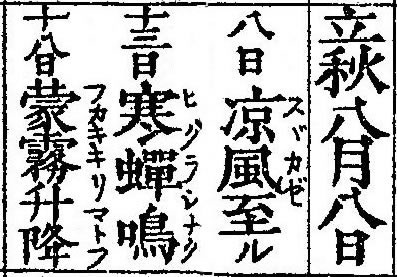 立秋八月八日
八日凉風至ル
スヾカゼ
十三日寒蟬鳴
ヒグラシナク
十八日蒙霧升降
フカキキリマトフ